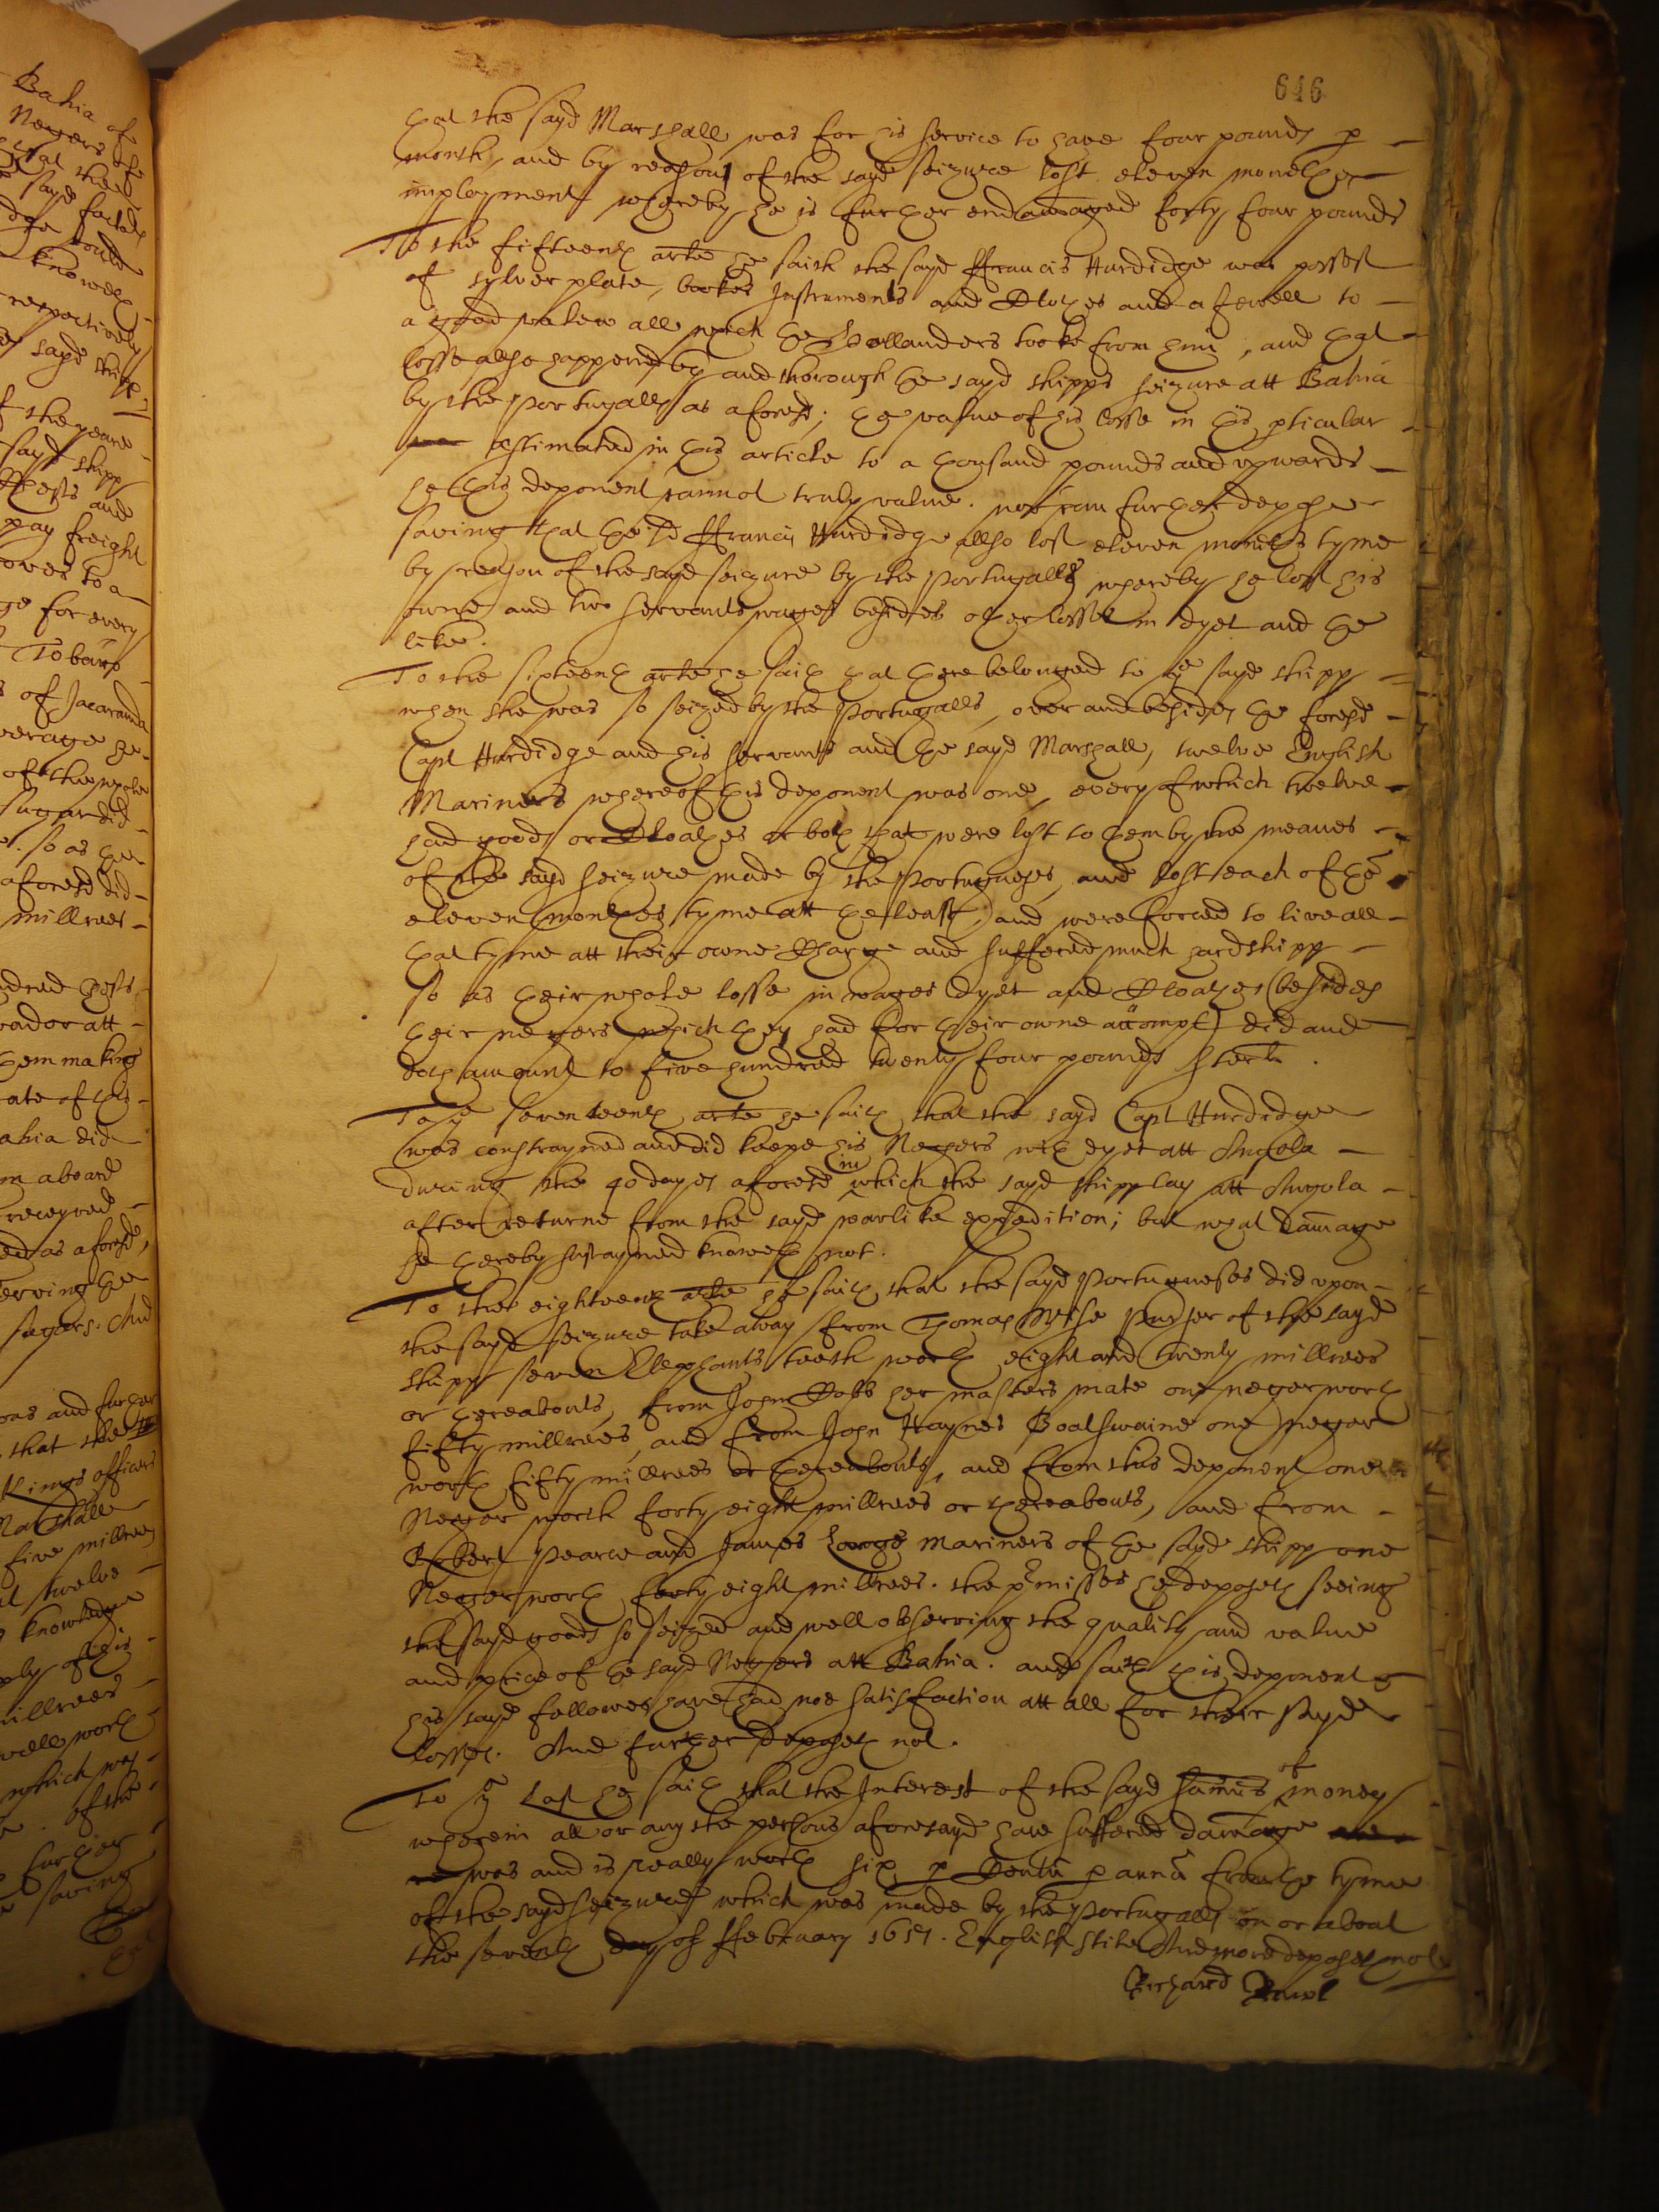 Bahia of
Negers of
that the
sayd factory
knoweth
respectively
sayd shipp
of the yeare
sayd shipp
and
pay freight
to a
for every
To barr
of Jacaranda
average he
of the whole
sugar did
so as the
aforesd did
millrees
att
them making
ate of this
ahia did
aboard
receyved
as aforesd,
the
sugars. And
and further
that the
Kings officers
Marshall
five millrees
twelve
knowledge
of his
millrees
well worth
which was
of the
further
saving
646
that the sayd Marshall was for his service to have four pounds p
month, and by reason of the sayd seizure lost eleven monethes
imployment whereby he is further endamaged forty four pounds
To the fifteenth arte he saith the sayd ffrancis Hurdidge was possest
of sylver plate, bookes Instruments and Clothes and a Jewell to
a good valew all which the Hollanders tooke from him, and that
losse also happened by and thorough the sayd shipps seizure att Bahia
by the Portugalls as aforesd; the value of his losse in this pticular
estimated in this article to a thousand pounds and upwards
he this deponent cannot truly value. nor can further depose
saving that the sd ffrancis Hurdidge allso lost eleven moneths tyme
by reason of the sayd seizure by the Portugalls whereby he lost his
owne and two servants wages besides other losses in dyet and the
like.
To the sixteenth arte he saith that there belonged to ye sayd shipp
when she was so seized by the Portugalls, over and besides the foresd
Capt Hurdidge and his servants and the sayd Marshall, twelve English
Mariners whereof this deponent was one, every of which twelve
had goods or Cloathes or both that were lost to them by the meanes
of the sayd seizure made by the Portugueses, and lost each of them
eleven monthes tyme att the least, and were forced to live all
that tyme att their owne Charge and suffered much hardshipp
so as their whole losse in wages dyet and Cloathes (besides
their negers which they had for their owne accompt) did and
doth amount to five hundred twenty four pounds sterl.
To ye seventeenth arte he saith that the sayd Capt Hurdidge
was constrayned and did keepe his Negers with dyet att Angola
during the 40 dayes aforesd in which the sayd shipp lay att Angola
after returne from the sayd warlike expedition; but what damage
he thereby sustayned knoweth not.
To the eighteenth arte he saith that the sayd Portugueses did upon
the sayd seizure take away from Thomas Wise Purser of the sayd
shipp seven Elephants teeth worth eight and twenty millrees
or thereabouts, from John Cobb her masters mate one neger worth
fifty millrees, and from John Haynes Boatswaine one neger
worth fifty millrees or thereabouts, and from this deponent one
Neger worth forty eight millrees or thereabouts, and from
Robert Pearce and James Longe mariners of the sayd shipp one
Neger worth forty eight millrees. the pmisses he deposeth seeing
the sayd goods so seized and well observing the quality and value
and price of the sayd Negers att Bahia. and saith this deponent &
his sayd fellowes have had noe satisfaction att all for their sayd
losses. And further deposeth not.
To ye last he saith that the Interest of the sayd summs of money
wherein all or any the persons aforesayd have suffered damage
was and is really worth six p Centu p annu from the tyme
of the sayd seizure which was made by the Portugalls on or about
the seventh day of ffebruary 1657. English stile And more deposeth not
Richard